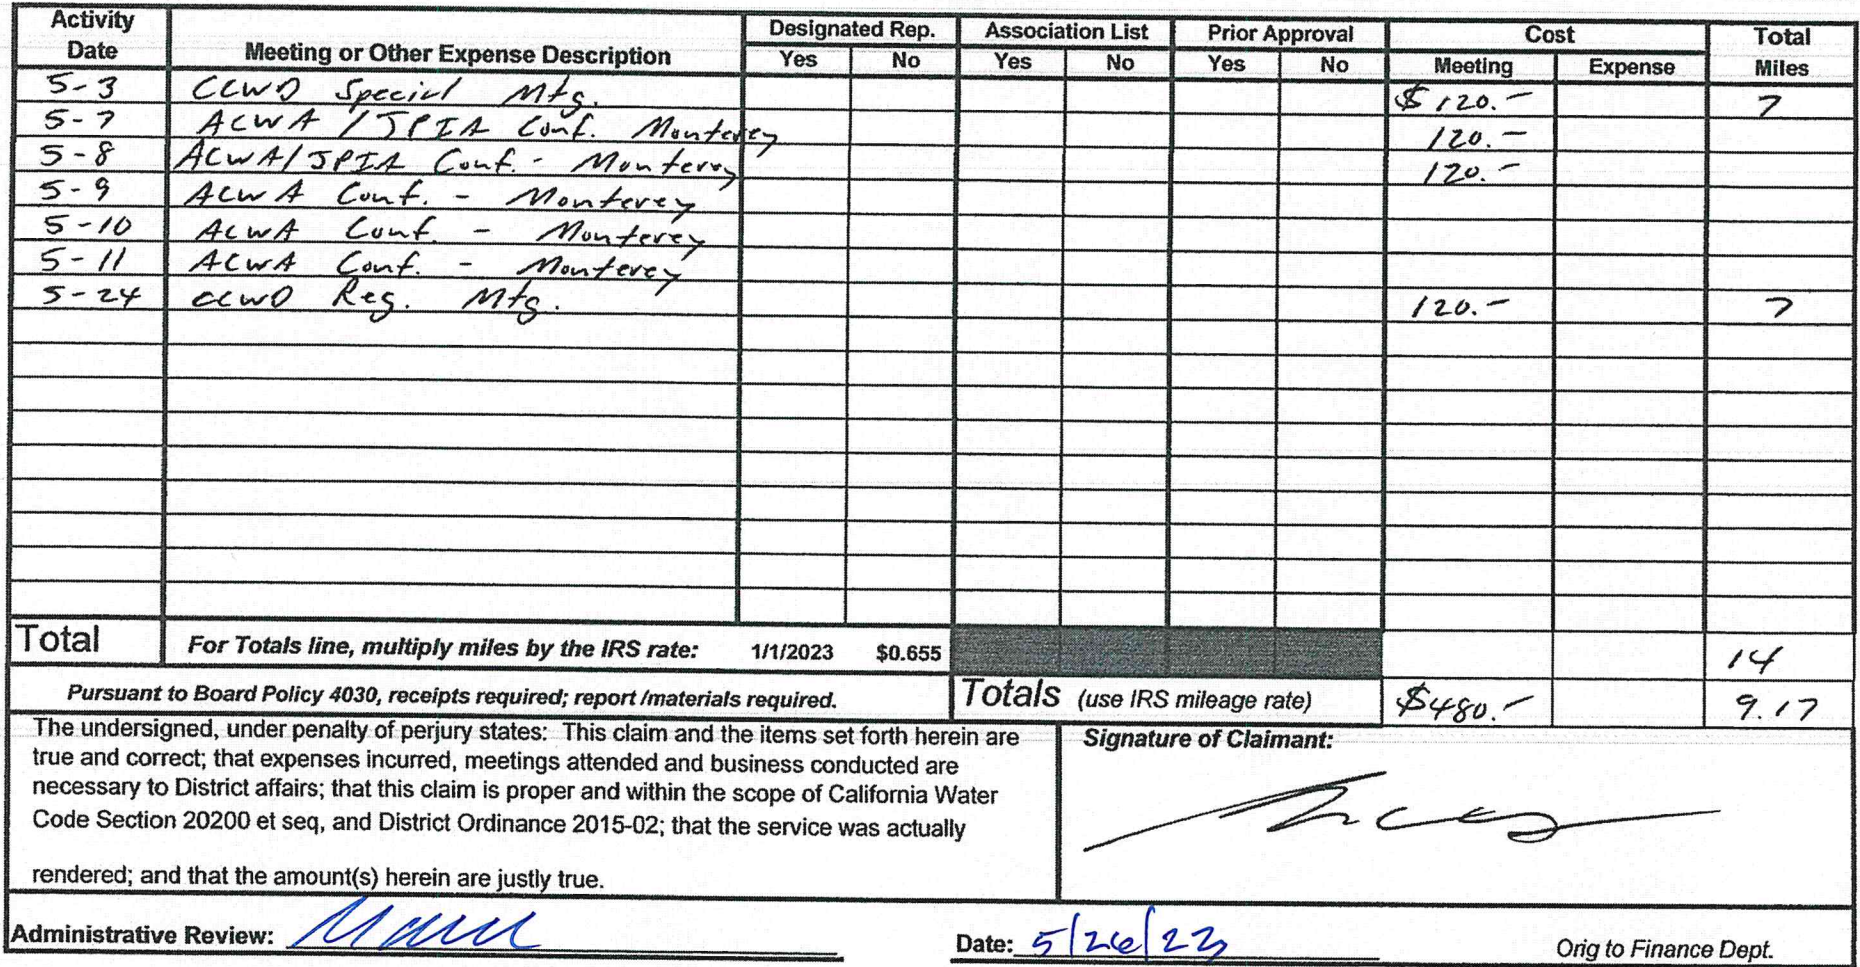 Activity Date Meeting or Other Expense Description Designated Rep. Association List Prior Approval Cost Total Miles
Yes No Yes No Yes No Meeting Expense
5-3 CCWD Special Mtg. $120.- 7
5-7 ACWA / JPIA Conf. Monterey 120.-
5-8 ACWA/JPIA Conf. - Monterey 120.-
5-9 ACWA Conf. - Monterey
5-10 ACWA Conf. - Monterey
5-11 ACWA Conf. - Monterey
5-24 CCWD Reg. Mtg. 120.- 7
Total For Totals line, multiply miles by the IRS rate: 1/1/2023 $0.655 14
Pursuant to Board Policy 4030, receipts required; report /materials required. Totals (use IRS mileage rate) $480.- 9.17
The undersigned, under penalty of perjury states: This claim and the items set forth herein are
true and correct; that expenses incurred, meetings attended and business conducted are
necessary to District affairs; that this claim is proper and within the scope of California Water
Code Section 20200 et seq, and District Ordinance 2015-02; that the service was actually
rendered; and that the amount(s) herein are justly true.
Signature of Claimant:
Administrative Review: Date: 5/26/23 Orig to Finance Dept.